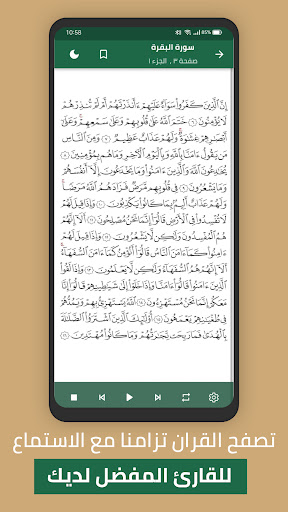 10:58
85%
سورة البقرة
صفحة ٣ ، الجزء ١
إِنَّ ٱلَّذِينَ كَفَرُوا۟ سَوَآءٌ عَلَيْهِمْ ءَأَنذَرْتَهُمْ أَمْ لَمْ تُنذِرْهُمْ
لَا يُؤْمِنُونَ ٦ خَتَمَ ٱللَّهُ عَلَىٰ قُلُوبِهِمْ وَعَلَىٰ سَمْعِهِمْ وَعَلَىٰٓ
أَبْصَٰرِهِمْ غِشَٰوَةٌ وَلَهُمْ عَذَابٌ عَظِيمٌ ٧ وَمِنَ ٱلنَّاسِ
مَن يَقُولُ ءَامَنَّا بِٱللَّهِ وَبِٱلْيَوْمِ ٱلْءَاخِرِ وَمَا هُم بِمُؤْمِنِينَ ٨
يُخَٰدِعُونَ ٱللَّهَ وَٱلَّذِينَ ءَامَنُوا۟ وَمَا يَخْدَعُونَ إِلَّآ أَنفُسَهُمْ
وَمَا يَشْعُرُونَ ٩ فِى قُلُوبِهِم مَّرَضٌ فَزَادَهُمُ ٱللَّهُ مَرَضًا
وَلَهُمْ عَذَابٌ أَلِيمٌۢ بِمَا كَانُوا۟ يَكْذِبُونَ ١٠ وَإِذَا قِيلَ لَهُمْ
لَا تُفْسِدُوا۟ فِى ٱلْأَرْضِ قَالُوٓا۟ إِنَّمَا نَحْنُ مُصْلِحُونَ ١١ أَلَآ إِنَّهُمْ
هُمُ ٱلْمُفْسِدُونَ وَلَٰكِن لَّا يَشْعُرُونَ ١٢ وَإِذَا قِيلَ لَهُمْ
ءَامِنُوا۟ كَمَآ ءَامَنَ ٱلنَّاسُ قَالُوٓا۟ أَنُؤْمِنُ كَمَآ ءَامَنَ ٱلسُّفَهَآءُ
أَلَآ إِنَّهُمْ هُمُ ٱلسُّفَهَآءُ وَلَٰكِن لَّا يَعْلَمُونَ ١٣ وَإِذَا لَقُوا۟
ٱلَّذِينَ ءَامَنُوا۟ قَالُوٓا۟ ءَامَنَّا وَإِذَا خَلَوْا۟ إِلَىٰ شَيَٰطِينِهِمْ قَالُوٓا۟ إِنَّا
مَعَكُمْ إِنَّمَا نَحْنُ مُسْتَهْزِءُونَ ١٤ ٱللَّهُ يَسْتَهْزِئُ بِهِمْ وَيَمُدُّهُمْ
فِى طُغْيَٰنِهِمْ يَعْمَهُونَ ١٥ أُو۟لَٰٓئِكَ ٱلَّذِينَ ٱشْتَرَوُا۟ ٱلضَّلَٰلَةَ
بِٱلْهُدَىٰ فَمَا رَبِحَت تِّجَٰرَتُهُمْ وَمَا كَانُوا۟ مُهْتَدِينَ ١٦
تصفح القران تزامنا مع الاستماع
للقارئ المفضل لديك